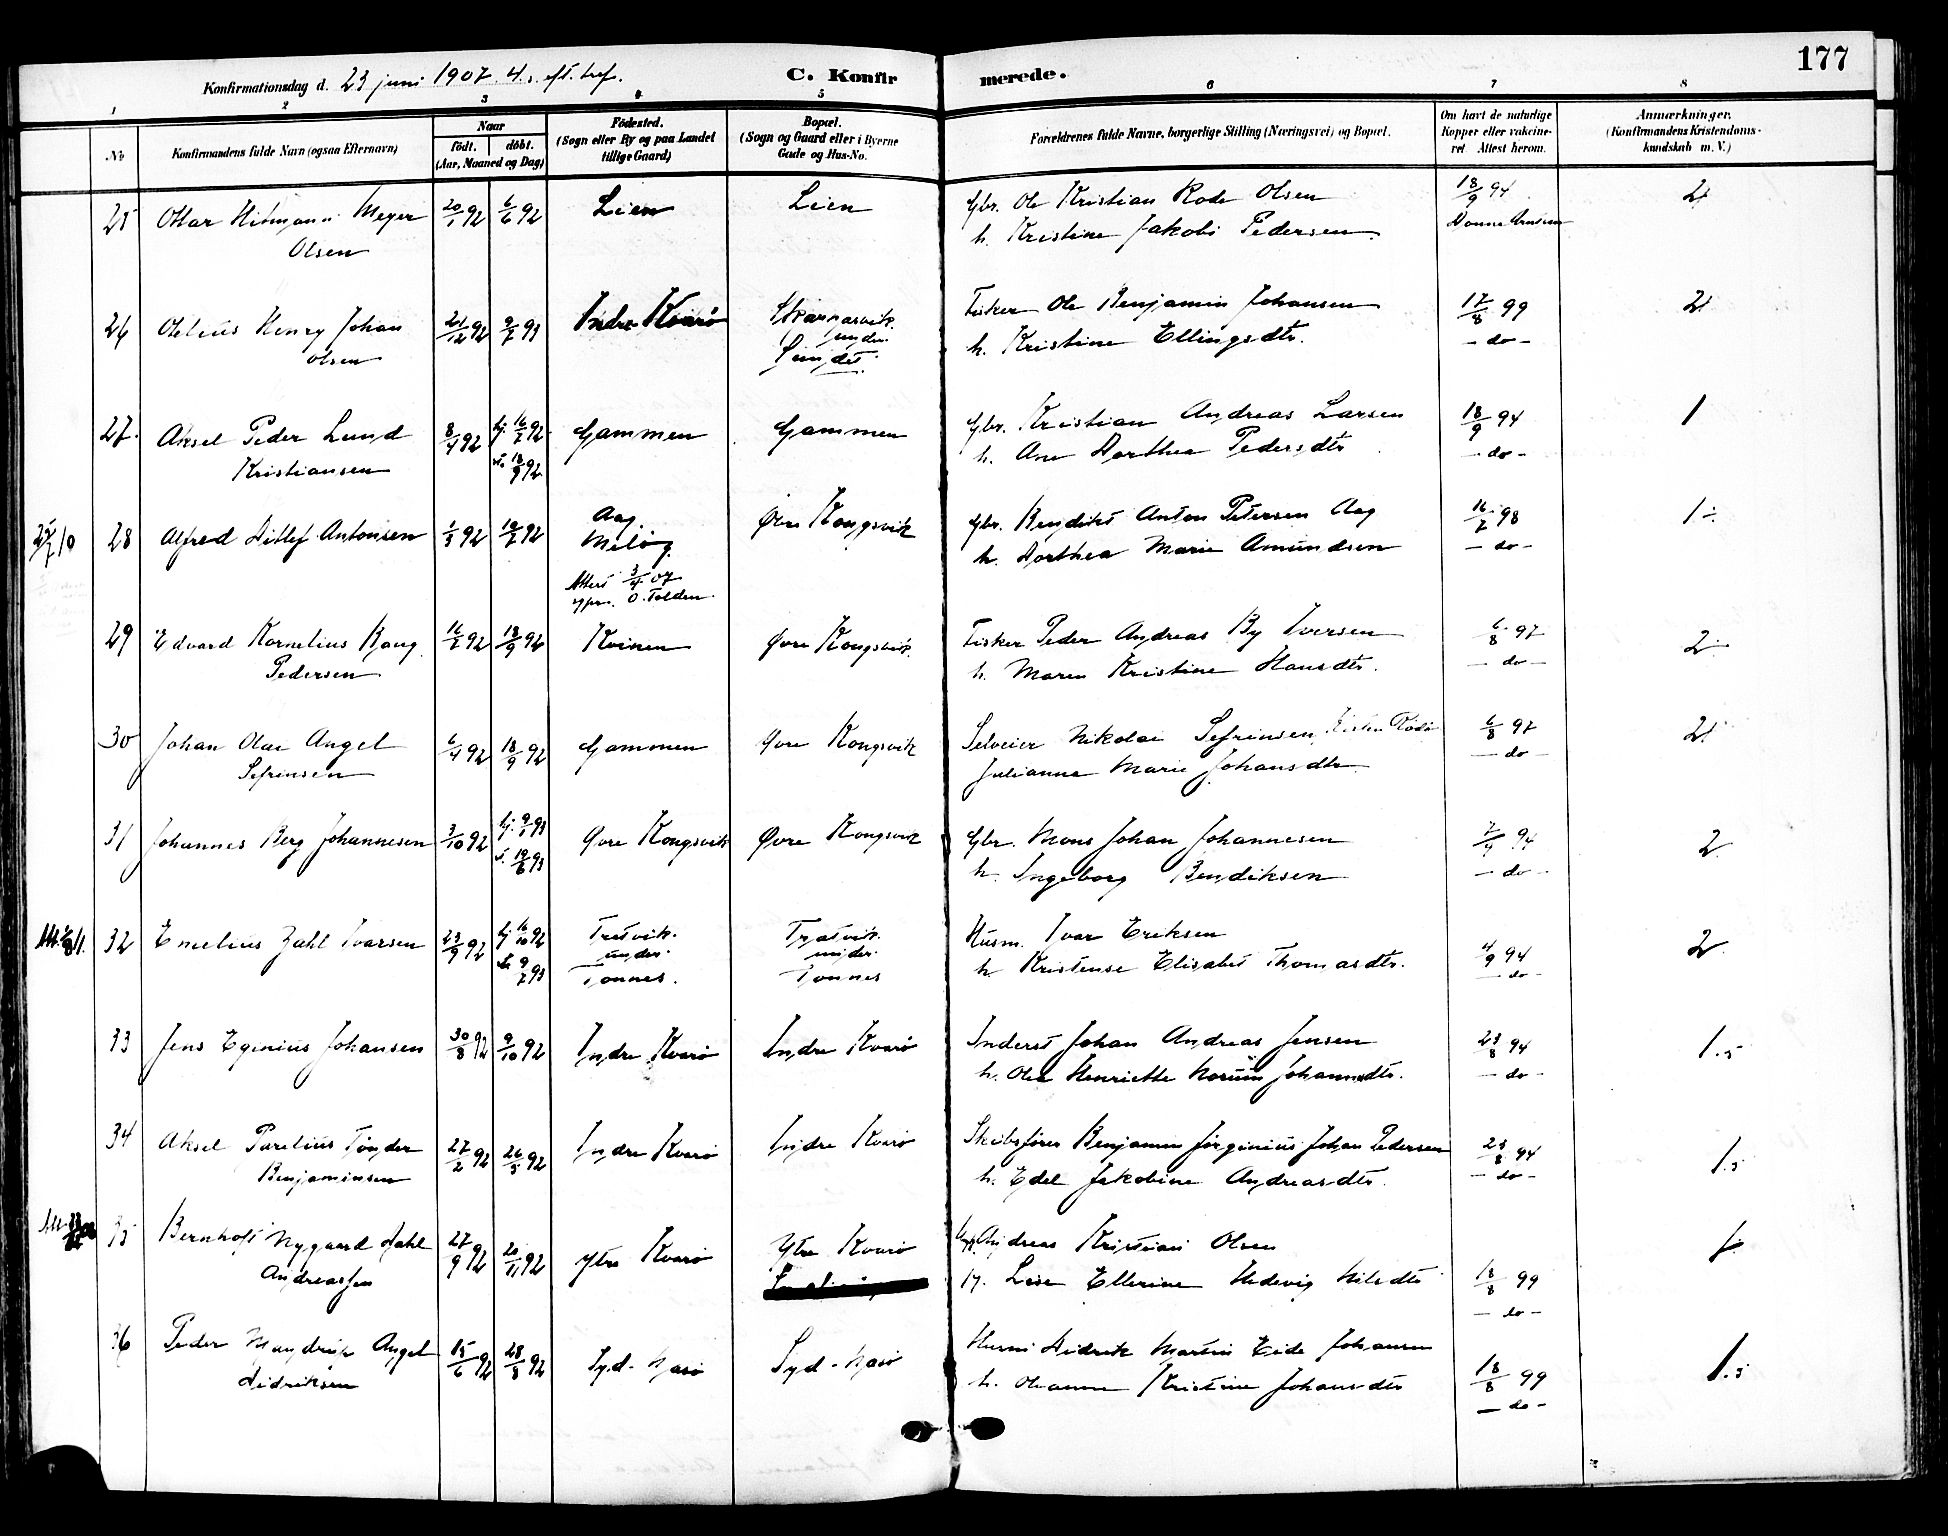 177
Konfirmationsdag d. 23 juni 1907. 4. s. eft. tref.
C. Konfirmerede.
1 2 3 4 5 6 7 8
No
Konfirmandens fulde Navn (ogsaa Efternavn)
Naar
født. døbt.
(Aar, Maaned og Dag)
Fødested.
(Sogn eller By og paa Landet
tillige Gaard)
Bopæl.
(Sogn og Gaard eller i Byerne
Gade og Hus-No.
Forældrenes fulde Navne, borgerlige Stilling (Næringsvei) og Bopæl.
Om havt de naturlige
Kopper eller vakcine-
ret. Attest herom.
Anmærkninger.
(Konfirmandens Kristendoms-
kundskab m. V.)
25 Ottar Hitmann Meyer 20/1 92 6/6 92 Lien Lien Gbr. Ole Kristian Rode Olsen 18/9 94 2
Olsen h. Kristine Jakobi Pedersen
26 Oleliùs Henry Johan 21/12 92 9/7 93 Indre Kvarø
Olsen under Sundet Fisker Ole Benjamin Johansen 17/8 99 2
h. Kristine Ellingsdtr. - do -
27. Aksel Peder Lund 8/4 92 hj. 16/7 92 Gammen Gammen Gbr. Kristian Andreas Larsen 18/9 94 1
Kristiansen 18/9 92 h. Ane Dorthea Pedersdtr - do -
28 Alfred Ditlef Antonsen 1/3 92 Aag Øvre Kongsvik Gbr. Bendikt Anton Petersen Aag 16/7 98 1 ÷
Meløy h. Dorthea Marie Amundsen - do -
Attest 3/4 07
29 Edvard Kornelius Kaug 16/7 92 18/9 92 Kvinen Øvre Kongsvik Fisker Peder Andreas By Iversen 6/8 97 2
Pedersen h. Maren Kristine Hansdtr. - do -
30 Johan Olai Angel 6/4 92 18/9 92 Gammen Øvre Kongsvik Selveier Nikolai Sefrinsen 6/8 97 2
Sefrinsen Julianna Marie Johansdtr - do -
31 Johannes Berg Johannesen 3/10 92 hj. 9/1 93 Øvre Kongsvik Øvre Kongsvik Gbr. Mons Johan Johannesen 94 2
k. 18/6 93 h. Ingeborg Bendiksen - do -
32 Emelius Zahl Ivarsen 23/9 92 hj 16/10 92 Tretvik Tratvik Husm. Ivar Eriksen 4/9 94 2
k 9/7 93 under under h Kristense Elisabet Thomasdtr. - do -
Tonnes. Tonnes
33 Jens Eginius Johansen 30/8 92 9/10 92 Indre Kvarø Indre Kvarø Inderst Johan Andreas Jensen 23/8 94 1.5
h. Olea Henriette Norum Johannsdtr. - do -
34 Aksel Parelius Tønder 27/2 92 26/5 92 Indre Kvarø Indre Kvarø Skibsfører Benjamin Jørginiùs Johan Pedersen 23/8 94 1.5
Benjaminsen h. Edel Jakobine Andreasdtr. - do -
35 Bernhoft Nygaard Dahl 27/9 92 20/11 92 Ytre Kvarø Ytre Kvarø Andreas Kristian Olsen 1
Andreassen Lise Ellerine Hedevig Nilsdtr 18/8 99
- do -
36 Peder Mandrik Angel 15/6 92 28/8 92 Syd-Nasø Syd-Nasø Husm. Didrik Martin Eide Johansen 18/8 99 1.5
Didriksen h. Oleanna Kristine Johansdtr - do -